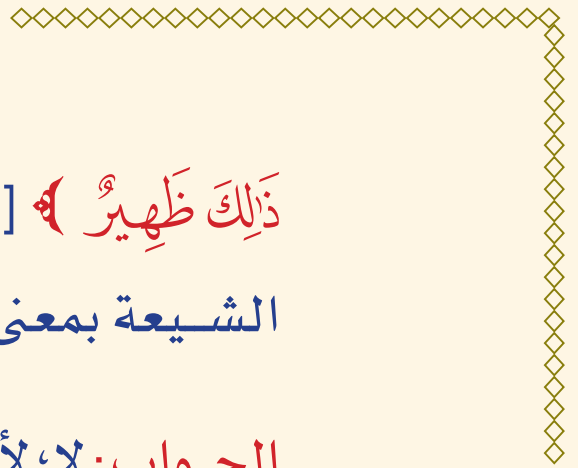 ذَٰلِكَ ظَهِيرٌ ﴾ [
الشيعة بمعنى
الجواب: لا، لأ